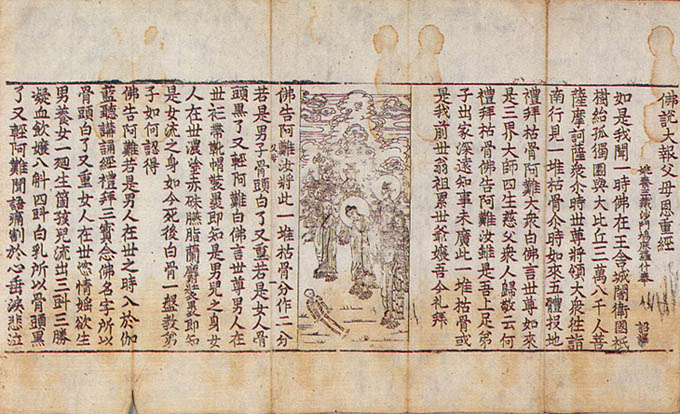 佛說大報父母恩重經
姚秦三藏沙門鳩摩羅什奉 詔譯
如是我聞一時佛在王舍城闍衛國祇
樹給孤獨園與大比丘三萬八千人菩
薩摩訶薩衆介時世尊將領大衆往詣
南行見一堆枯骨介時如來五體投地
禮拜枯骨阿難大衆白佛言世尊如來
是三界大師四生慈父衆人歸敬云何
禮拜枯骨佛告阿難汝雖是吾上足弟
子出家深遠知事未廣此一堆枯骨或
是我前世翁祖累世爺孃吾今礼拜
佛告阿難汝將此一堆枯骨分作二分
若是男子骨頭白了又重若是女人骨
頭黑了又輕阿難白佛言世尊男人在
世衫帶靴帽裝裹即知是男兒之身女
人在世濃塗赤硃臙脂蘭麝裝裹即知
是女流之身如今死後白骨一盤教弟
子如何認得
佛告阿難若是男人在世之時入於伽
藍聽講誦經禮拜三寶念佛名字所以
骨頭白了又重女人在世恣情婬欲生
男養女一廻生箇孩兒流出三㪷三勝
凝血飲孃八斛四㪷白乳所以骨頭黑
了又輕阿難聞語痛割於心垂淚悲泣